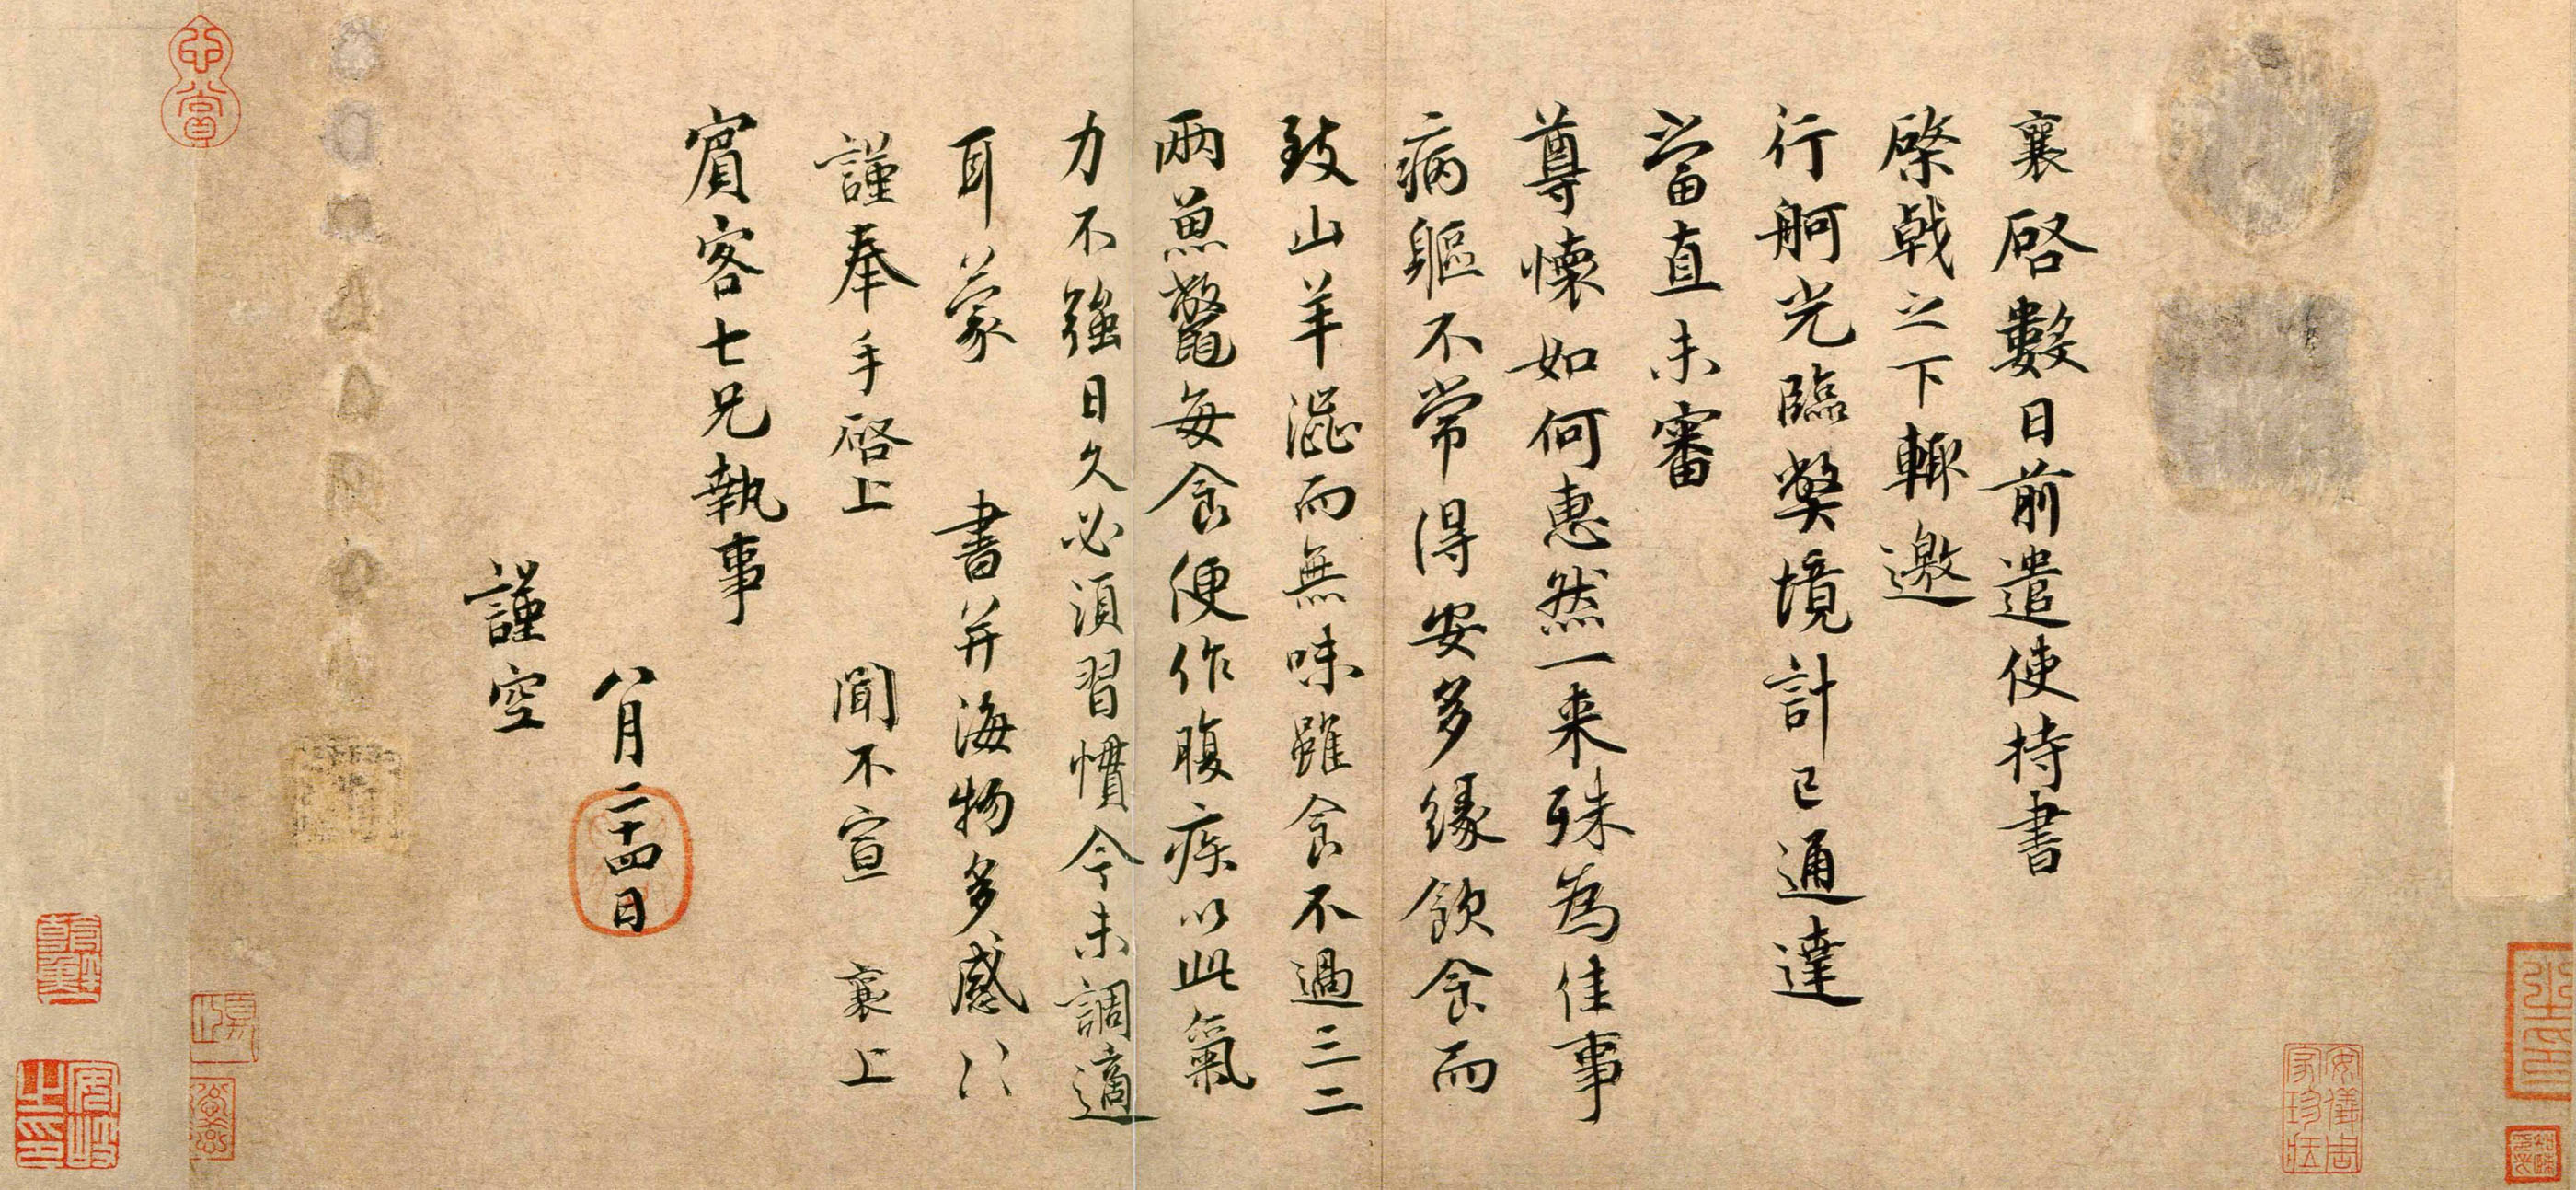 襄啓數日前遣使持書
棨戟之下輙邀
行舸光臨獘境計已通達
當直未審
尊懷如何惠然一来殊為佳事
病軀不常得安多緣飲食而
致山羊澀而無味雖食不過三二
兩魚鼈每食便作腹疾以此氣
力不強日久必湏習慣今未調適
耳蒙 書并海物多感〻
謹奉手啓上 聞不宣 襄上
賔客七兄執事
八月二十四日
謹空
安儀周家珍藏